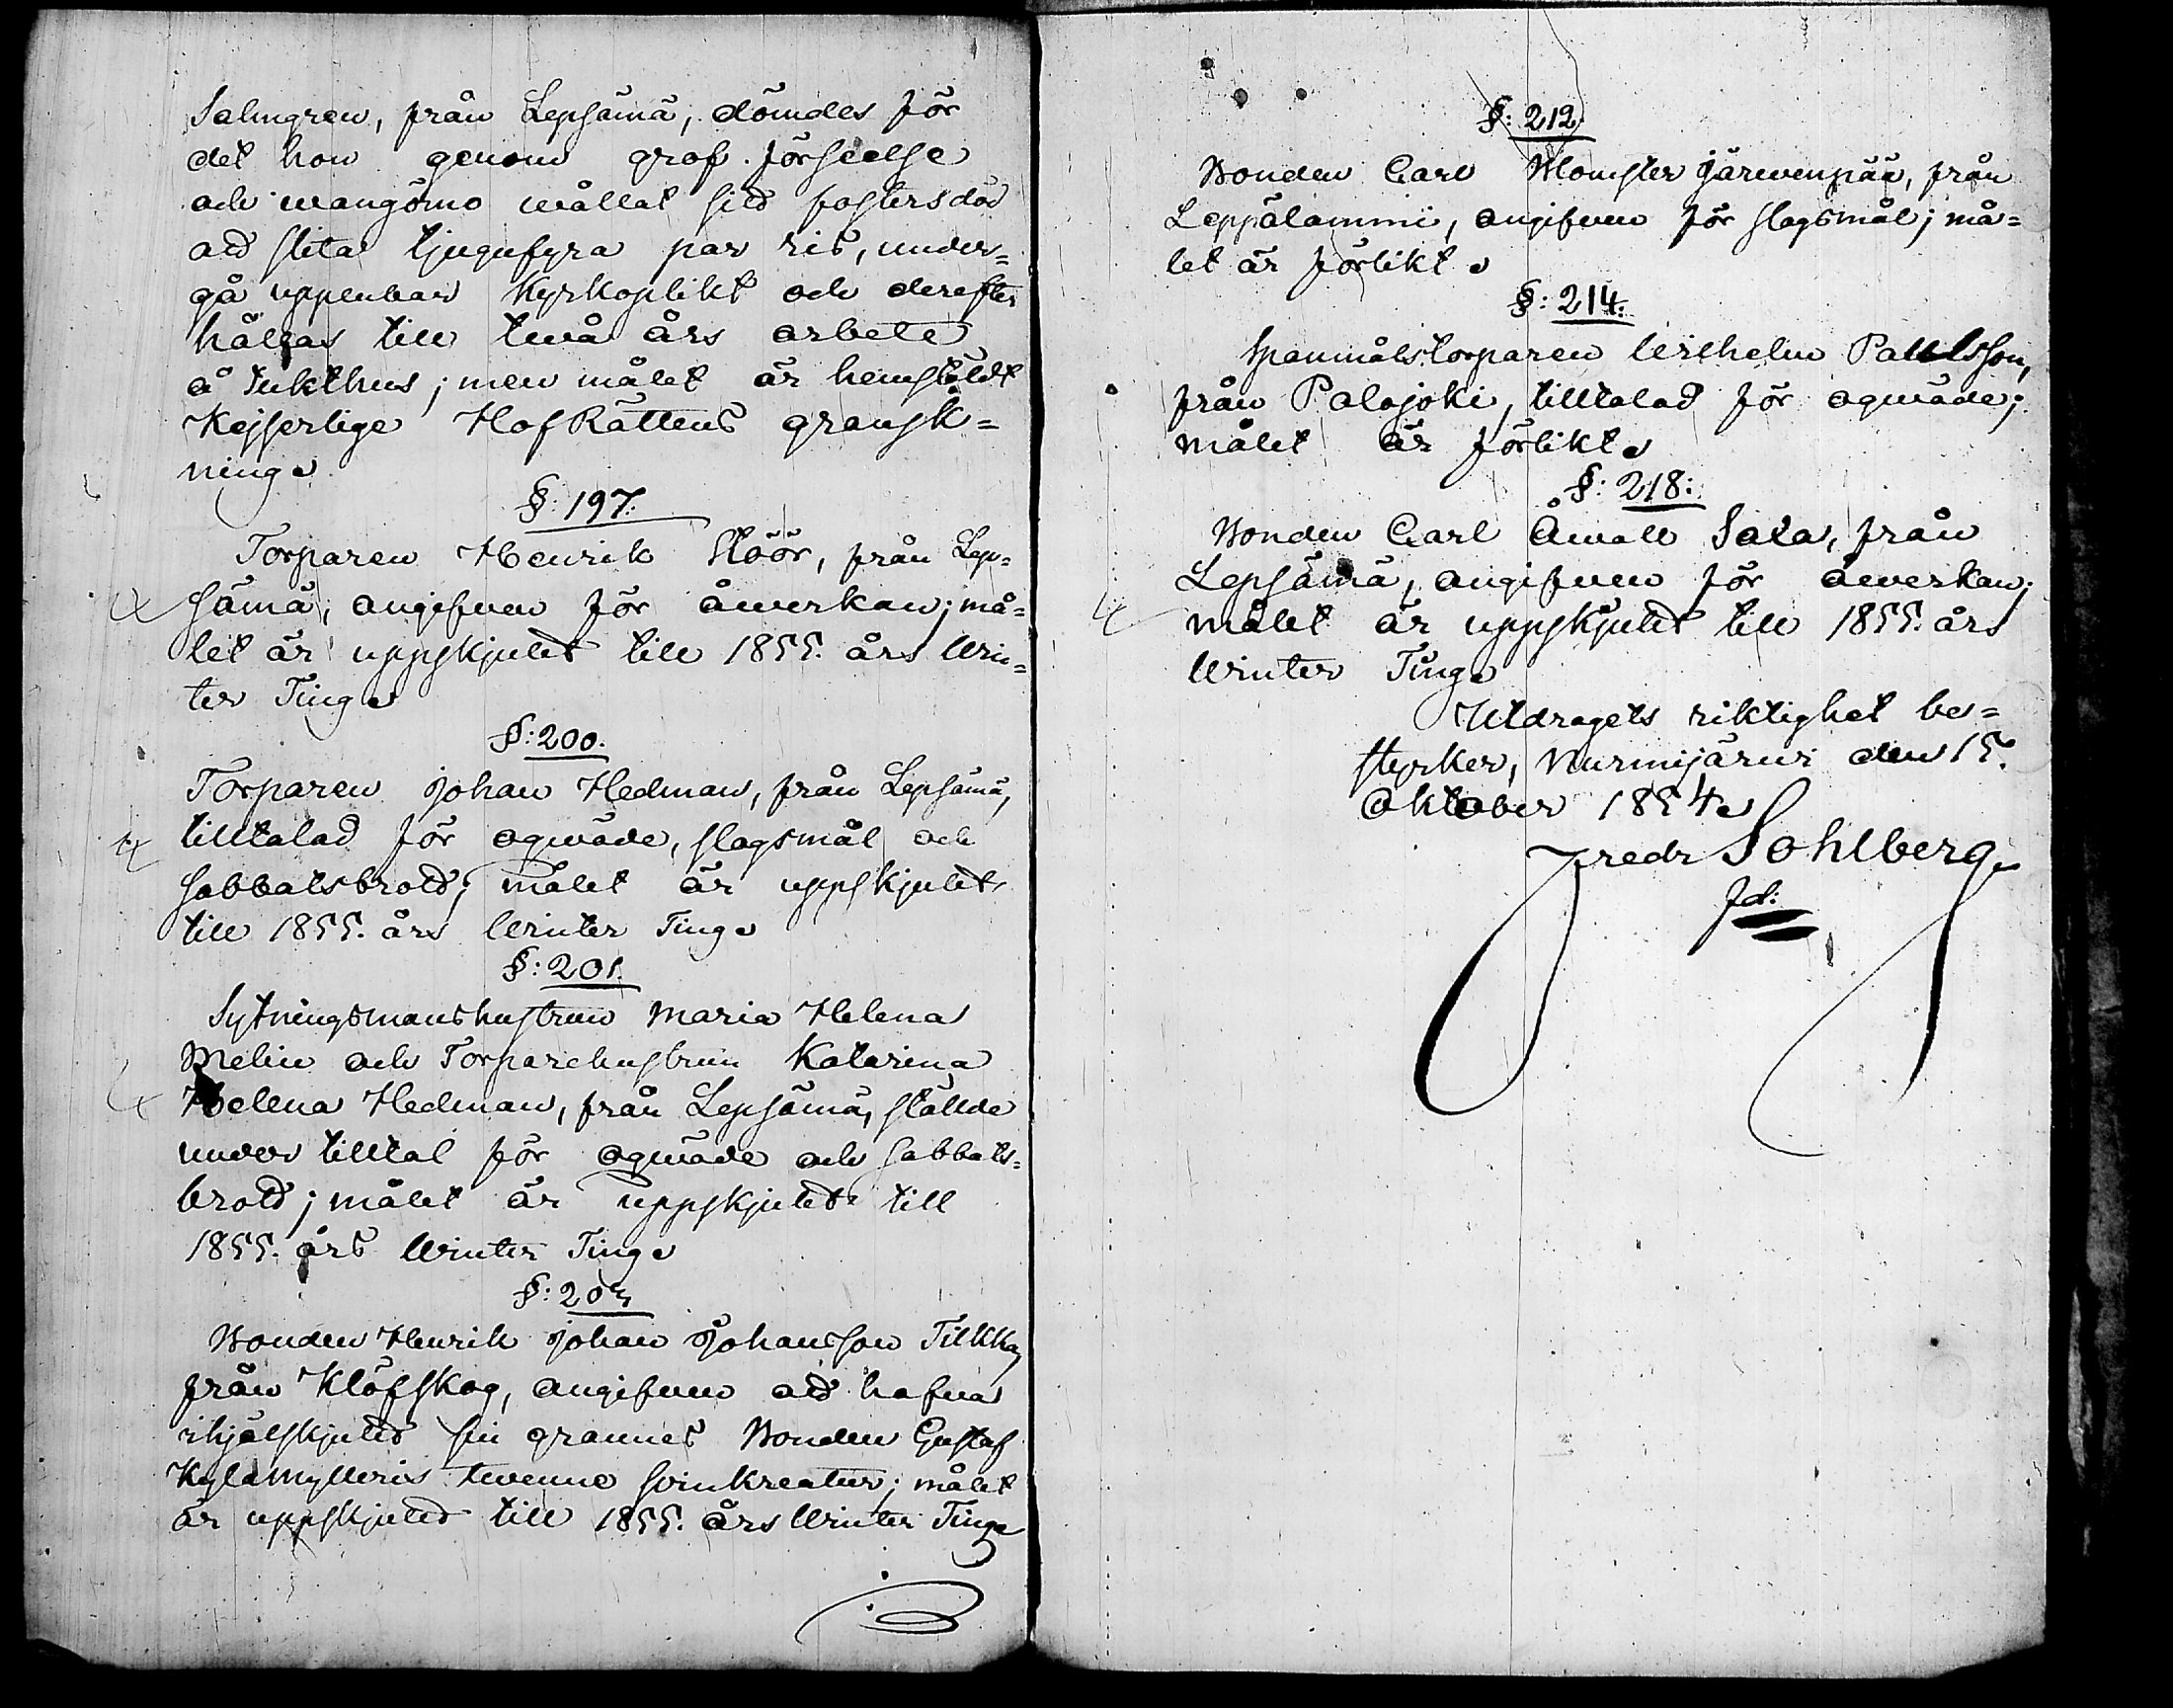 Salmgren, från Lepsämä, dömdes för
det hon genom grof förseelse
och wangömo wållat sitt fosters död
att slita tjugufyra par ris, under=
gå uppenbar Kyrkoplikt och derefter
hållas till twå års arbete
å Tukthus; men målet är hemstäldt
Kejserlige HofRättens gransk=
ning.
§: 197.
Torparen Henrik Stöör, från Lep=
sämä, angifwen för åwerkan; må=
let är uppskjutet till 1855. års Win=
ter Ting.
§: 200.
Torparen Johan Hedman, från Lepsämä,
tilltalad för oqwäde, slagsmål och
sabbatsbrott; målet är uppskjutet
till 1855. års Winter Ting.
§: 201.
Sytningsmanshustrun Maria Helena
Melin och Torparehustrun Katarina
Helena Hedman, från Lepsämä, stälde
under tilltal för oqwäde och sabbats=
brott; målet är uppskjutet till
1855. års Winter Ting.
§: 203
Bonden Henrik Johan Johansson Tilkka,
från Klöfskog, angifwen att hafwa
ihjälskjutet sin grannes Bonden Gustaf
Kylämylleris twenne swinkreatur; målet
är uppskjutet till 1855. års Winter Ting.
§: 212.
Bonden Carl Blomster Järwenpää, från
Leppälammi, angifwen för slagsmål; må=
let är förlikt.
§: 214.
Spanmålstorparen Wilhelm Paulsson,
från Palojoki, tilltalad för oqwäde;
målet är förlikt.
§: 218:
Bonden Carl Åwall Sala, från
Lepsämä, angifwen för åwerkan;
målet är uppskjutet till 1855. års
Winter Ting.
Utdragets riktighet be=
styrker, Nurmijärwi den 15.
Oktober 1854.
Fredr Sohlberg.
fd: